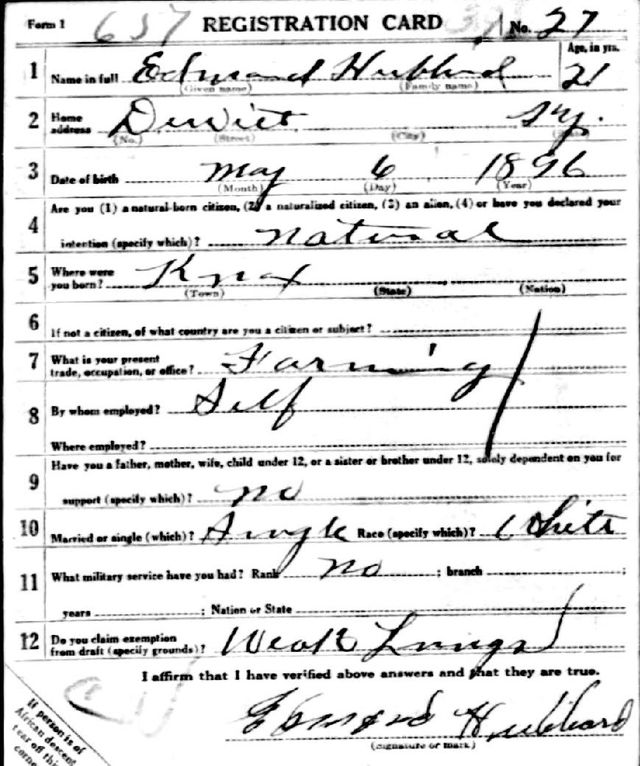 Form 1 657 REGISTRATION CARD No. 27
1 Name in full Edmond Hubbard Age, in yrs. 21
(Given name) (Family name)
2 Home address Dewitt Ky.
(No.) (Street) (City)
3 Date of birth May 6 1896
(Month) (Day) (Year)
4 Are you (1) a natural-born citizen, (2) a naturalized citizen, (3) an alien, (4) or have you declared your
intention (specify which)? Natural
5 Where were you born? Knox
(Town) (State) (Nation)
6 If not a citizen, of what country are you a citizen or subject?
7 What is your present trade, occupation, or office? Farming
8 By whom employed? Self
Where employed?
9 Have you a father, mother, wife, child under 12, or a sister or brother under 12, solely dependent on you for
support (specify which)? no
10 Married or single (which)? Single Race (specify which)? White
11 What military service have you had? Rank no ; branch ;
years ; Nation or State
12 Do you claim exemption from draft (specify grounds)? Weak Lungs
I affirm that I have verified above answers and that they are true.
Edmond Hubbard
(Signature or mark)
If person is of
African descent
tear off this
corner